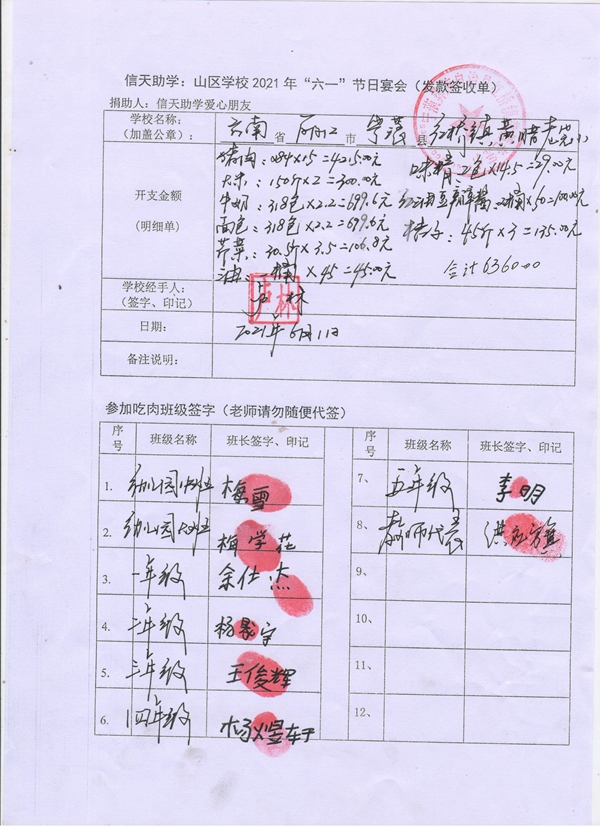 信天助学：山区学校2021年“六一”节日宴会（发款签收单）
捐助人：信天助学爱心朋友
学校名称：
（加盖公章）：
云南 省 丽江 市 宁蒗 县 红桥镇黄腊老完小
开支金额
（明细单）
猪肉：×15=4215.00元 味精2包×14.5=29.00元
大米：150斤×2=300.00元
牛奶：318包×2.2=699.6元 ×50=100.00元
面包：318包×2.2=699.6元 桔子：45斤×3=135.00元
芹菜：30.5斤×3.5=106.8元
油：一桶×45=45.00元 合计6360.00
学校经手人：
（签字、印记）
卢林
日期：
2021年6月1日
备注说明：
参加吃肉班级签字（老师请勿随便代签）
序号 班级名称 班长签字、印记 序号 班级名称 班长签字、印记
1. 幼儿园小班 梅雪
2. 幼儿园大班 梅学花
3. 一年级 余仕杰
4. 二年级
5. 三年级 王俊辉
6. 四年级
7、 五年级 李明
8、 教师代表
9、
10、
11、
12、